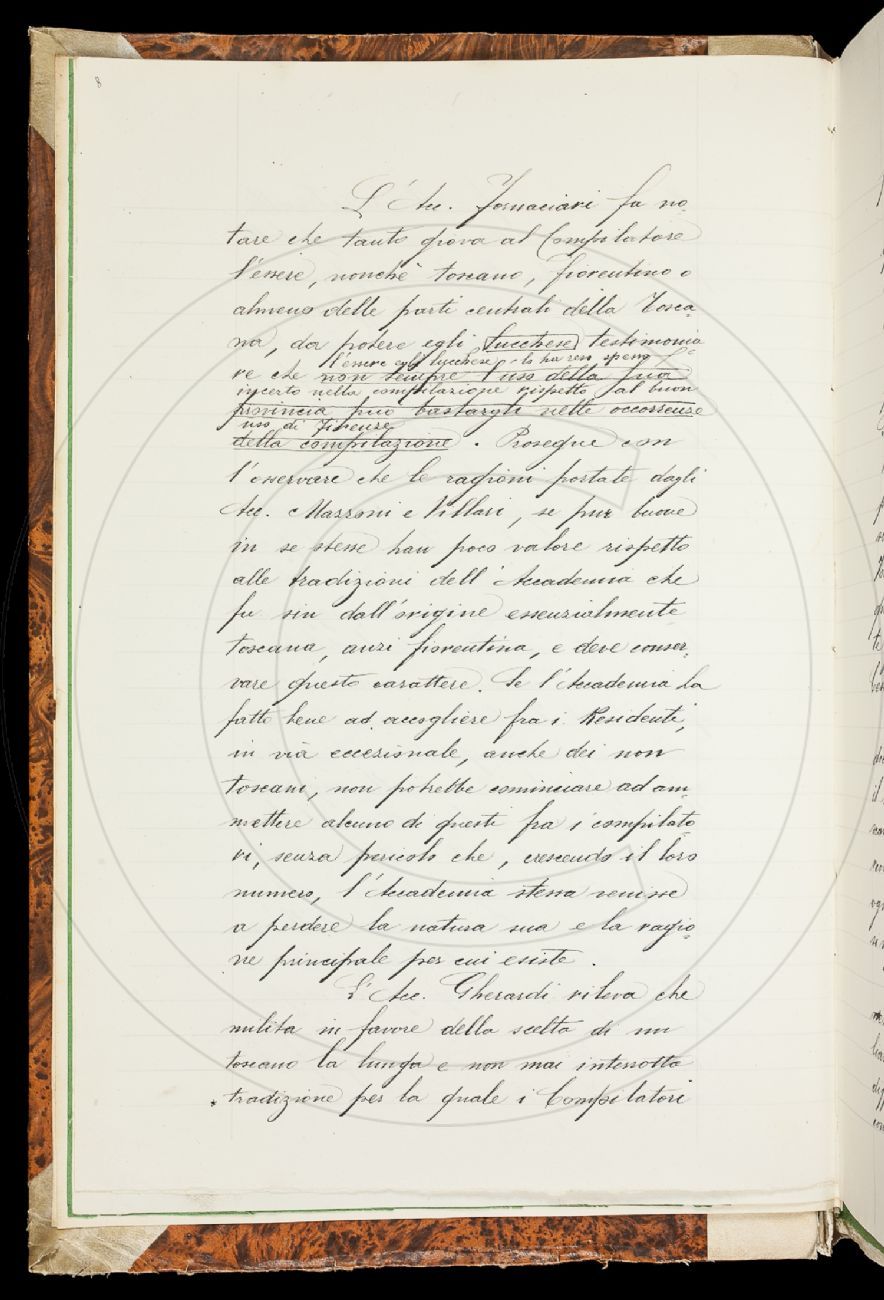 8
L'Acc. Fornaciari fa no-
tare che tanto giova al Compilatore
l'essere, nonchè toscano, fiorentino o
almeno delle parti centrali della Tosca-
na, da potere egli lucchese testimonia-
l'essere egli lucchese lo ha reso spesso
re che non sempre l'uso della sua
incerto nella compilazione rispetto al buon
provincia può bastargli nelle occorrenze
uso di Firenze
della compilazione. Prosegue con
l'osservare che le ragioni portate dagli
Acc. Mazzoni e Villari, se pur buone
in se stesse han poco valore rispetto
alle tradizioni dell'Accademia che
fu sin dall'origine essenzialmente
toscana, anzi fiorentina, e deve conser-
vare questo carattere. Se l'Accademia ha
fatto bene ad accogliere fra i Residenti,
in via eccezionale, anche dei non
toscani, non potrebbe cominciare ad am-
mettere alcuno di questi fra i compilato-
ri, senza pericolo che, crescendo il loro
numero, l'Accademia stessa venisse
a perdere la natura sua e la ragio-
ne principale per cui esiste.
L'Acc. Gherardi rileva che
milita in favore della scelta di un
toscano la lunga e non mai interrotta
tradizione per la quale i Compilatori